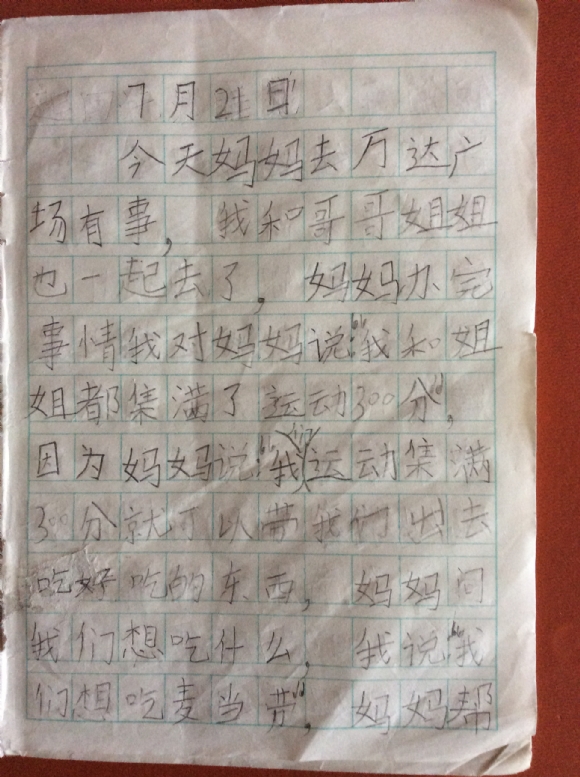 7月21日
今天妈妈去万达广
场有事，我和哥哥姐姐
也一起去了，妈妈办完
事情我对妈妈说：“我和姐
姐都集满了运动300分”，
因为妈妈说：“我们运动集满
300分就可以带我们出去
吃好吃的东西，妈妈问
我们想吃什么，我说“我
们想吃麦当劳”，妈妈帮